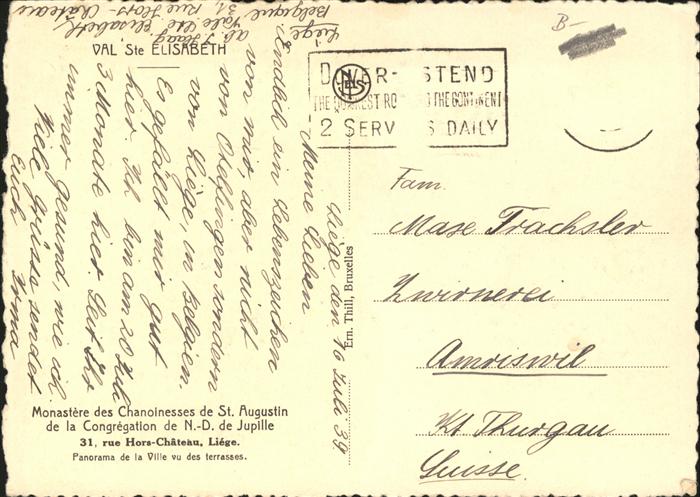 VAL Ste ELISABETH
Liège den 16 Juli 39.
Meine Lieben
Endlich ein Lebenszeichen
von mir, aber nicht
von Oftringen sondern
von Liège, in Belgien.
Es gefällt mir gut
hier. Ich bin am 20 Juli
3 Monate hier. Seit Ihr
immer gesund, wie ich.
Viele Grüsse sendet
Euch Irma
ab. J. Haag
Vale Ste Elisabeth
31, rue Hors-Château
Liège Belgique
DOVER-OSTEND
THE QUICKEST ROUTE TO THE CONTINENT
2 SERVICES DAILY
B-
Ern. Thill, Bruxelles
NELS
Fam.
Mase Trachsler
Zwirnerei
Amriswil
Kt. Thurgau
Suisse.
Monastère des Chanoinesses de St. Augustin
de la Congrégation de N.-D. de Jupille
31, rue Hors-Château, Liége.
Panorama de la Ville vu des terrasses.